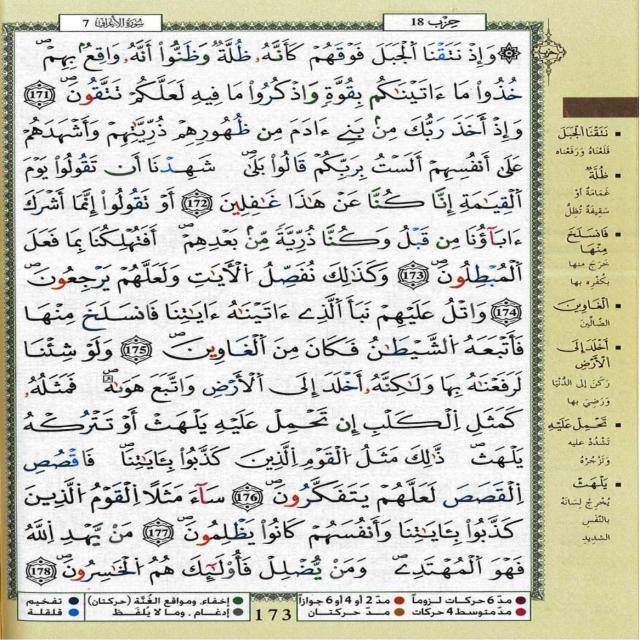 7 سُورَةُ الأَعْرَافِ
حِزْب 18
۞ وَإِذْ نَتَقْنَا اَلْجَبَلَ فَوْقَهُمْ كَأَنَّهُۥ ظُلَّةٌ وَظَنُّوٓاْ أَنَّهُۥ وَاقِعُۢ بِهِمْ ۖ
خُذُواْ مَا ءَاتَيْنَٰكُم بِقُوَّةٍ وَاذْكُرُواْ مَا فِيهِ لَعَلَّكُمْ تَتَّقُونَ ۖ 171
وَإِذْ أَخَذَ رَبُّكَ مِنۢ بَنِےٓ ءَادَمَ مِن ظُهُورِهِمْ ذُرِّيَّٰتِهِمْ وَأَشْهَدَهُمْ
عَلَىٰٓ أَنفُسِهِمْ أَلَسْتُ بِرَبِّكُمْ قَالُواْ بَلَىٰ ۖ شَهِدْنَآ أَن تَقُولُواْ يَوْمَ
اَلْقِيَٰمَةِ إِنَّا كُنَّا عَنْ هَٰذَا غَٰفِلِينَ 172 أَوْ تَقُولُوٓاْ إِنَّمَآ أَشْرَكَ
ءَابَآؤُنَا مِن قَبْلُ وَكُنَّا ذُرِّيَّةً مِّنۢ بَعْدِهِمْ ۖ أَفَتُهْلِكُنَا بِمَا فَعَلَ
اَلْمُبْطِلُونَ ۖ 173 وَكَذَٰلِكَ نُفَصِّلُ اُلْأيَٰتِ وَلَعَلَّهُمْ يَرْجِعُونَ ۖ
174 وَاتْلُ عَلَيْهِمْ نَبَأَ اَلَّذِےٓ ءَاتَيْنَٰهُ ءَايَٰتِنَا فَانسَلَخَ مِنْهَا
فَأَتْبَعَهُ اُلشَّيْطَٰنُ فَكَانَ مِنَ اَلْغَاوِينَ ۖ 175 وَلَوْ شِئْنَا
لَرَفَعْنَٰهُ بِهَا وَلَٰكِنَّهُۥٓ أَخْلَدَ إِلَى اَلْأَرْضِ وَاتَّبَعَ هَوَىٰهُ ۖ فَمَثَلُهُۥ
كَمَثَلِ اِلْكَلْبِ إِن تَحْمِلْ عَلَيْهِ يَلْهَثْ أَوْ تَتْرُكْهُ
يَلْهَث ۖ ذَّٰلِكَ مَثَلُ اُلْقَوْمِ اِلَّذِينَ كَذَّبُواْ بِـَٔايَٰتِنَا ۖ فَاقْصُصِ
اِلْقَصَصَ لَعَلَّهُمْ يَتَفَكَّرُونَ ۖ 176 سَآءَ مَثَلاً اَلْقَوْمُ اُلَّذِينَ
كَذَّبُواْ بِـَٔايَٰتِنَا وَأَنفُسَهُمْ كَانُواْ يَظْلِمُونَ ۖ 177 مَنْ يَّهْدِ اِللَّهُ
فَهُوَ اَلْمُهْتَدِے ۖ وَمَنْ يُّضْلِلْ فَأُوْلَٰٓئِكَ هُمُ اُلْخَٰسِرُونَ ۖ 178
حِزْب
نَتَقْنَا اَلْجَبَلَ
قَلَعْنَاهُ وَرَفَعْنَاه
ظُلَّةٌ
غَمَامَةٌ أَوْ
سَقِيفَةٌ تُظِلُّ
فَانسَلَخَ
مِنْهَا
خَرَجَ مِنها
بِكُفْرِهِ بها
اَلْغَاوِينَ
الضَّالِّينَ
أَخْلَدَ إِلَى
اَلْأَرْضِ
رَكَنَ إِلى الدُّنْيَا
وَرَضِيَ بها
تَحْمِلْ عَلَيْهِ
تَشْدُدْ عليه
وَتَزْجُرْهُ
يَلْهَثْ
يُخْرِجْ لِسَانَهُ
بالنَّفَسِ
الشديدِ
مدّ 6 حركات لزوماً
مدّ 2 أو 4 أو 6 جوازاً
إخفاء، ومواقع الغُنَّة (حركتان)
تفخيم
مدّ متوسط 4 حركات
مدّ حركتان
إدغام، وما لا يُلفَظ
قلقلة
173